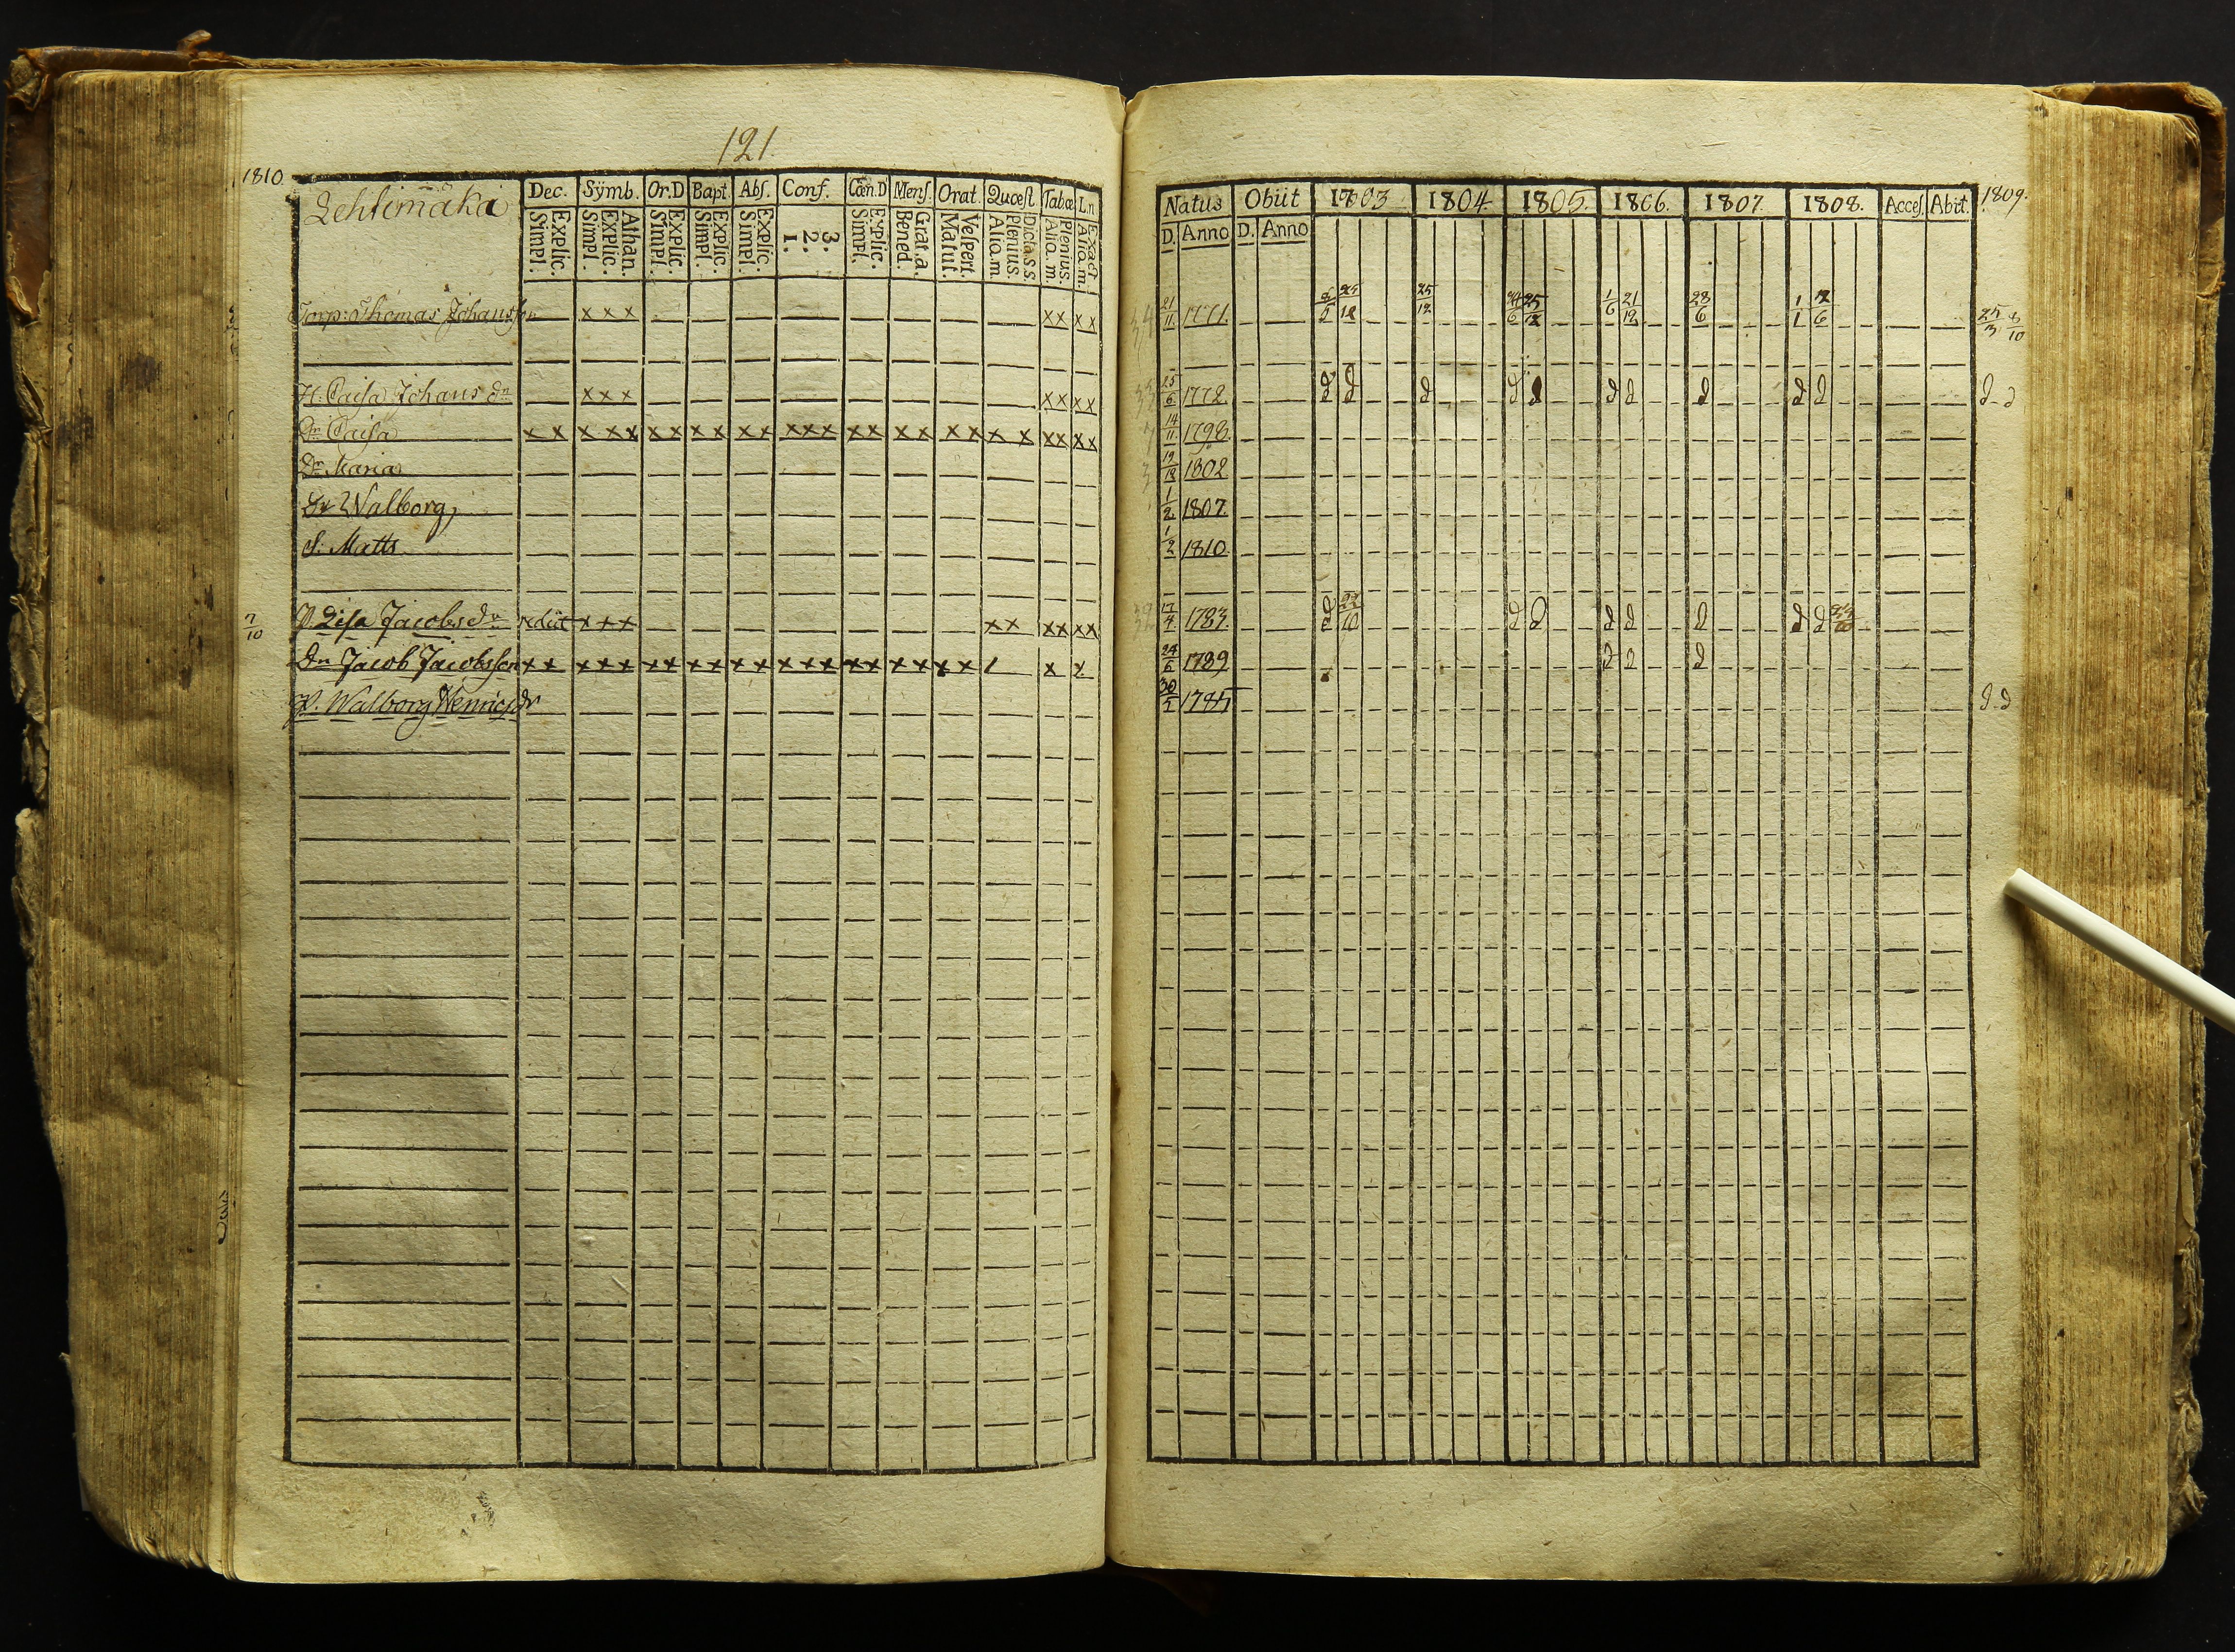 121.
1810.
Lehtimäki
Dec. Symb. Or.D Bapt. Abs. Conf. Cœn.D Mens. Orat. Quœst Tabœ L.n.
Explic. Simpl. Athan. Explic. Simpl. Explic. Simpl. Explic. Simpl. Explic. Simpl. 3. 2. 1. Explic. Simpl. Grat.a. Bened. Vespert. Matut. Dicta.s.s. Plenius. Aliq.m. Plenius. Aliq.m. Exact Aliq.m.
Torp: Thomas Johansson x x x x x x x
H: Caisa Johans dr x x x x x x x
Dr Caisa x x x x x x x x x x x x x x x x x x x x x x x x x x
Dr Maria
Dr Walborg
S: Matts
7/10 P. Lisa Jacobsdr rediit x x x x x x x x x
Dn Jacob Jacobsson x x x x x x x x x x x x x x x x x x x x x x
P. Walborg Henricsdr
Natus Obiit 1803 1804 1805. 1806. 1807. 1808. Acces. Abit. 1809.
D. Anno D. Anno
21/11 1771. 25/12 25/12 1/6 21/12 28/6 1/1 25/3 8/10
25/6 1778. d d d d d d d d d d d - d
14/11 1798.
19/12 1802
1/2 1807.
1/2 1810
17/4 1783. d 22/10 d d d d d d d
24/6 1789 d d d
30/5 1785 d - d